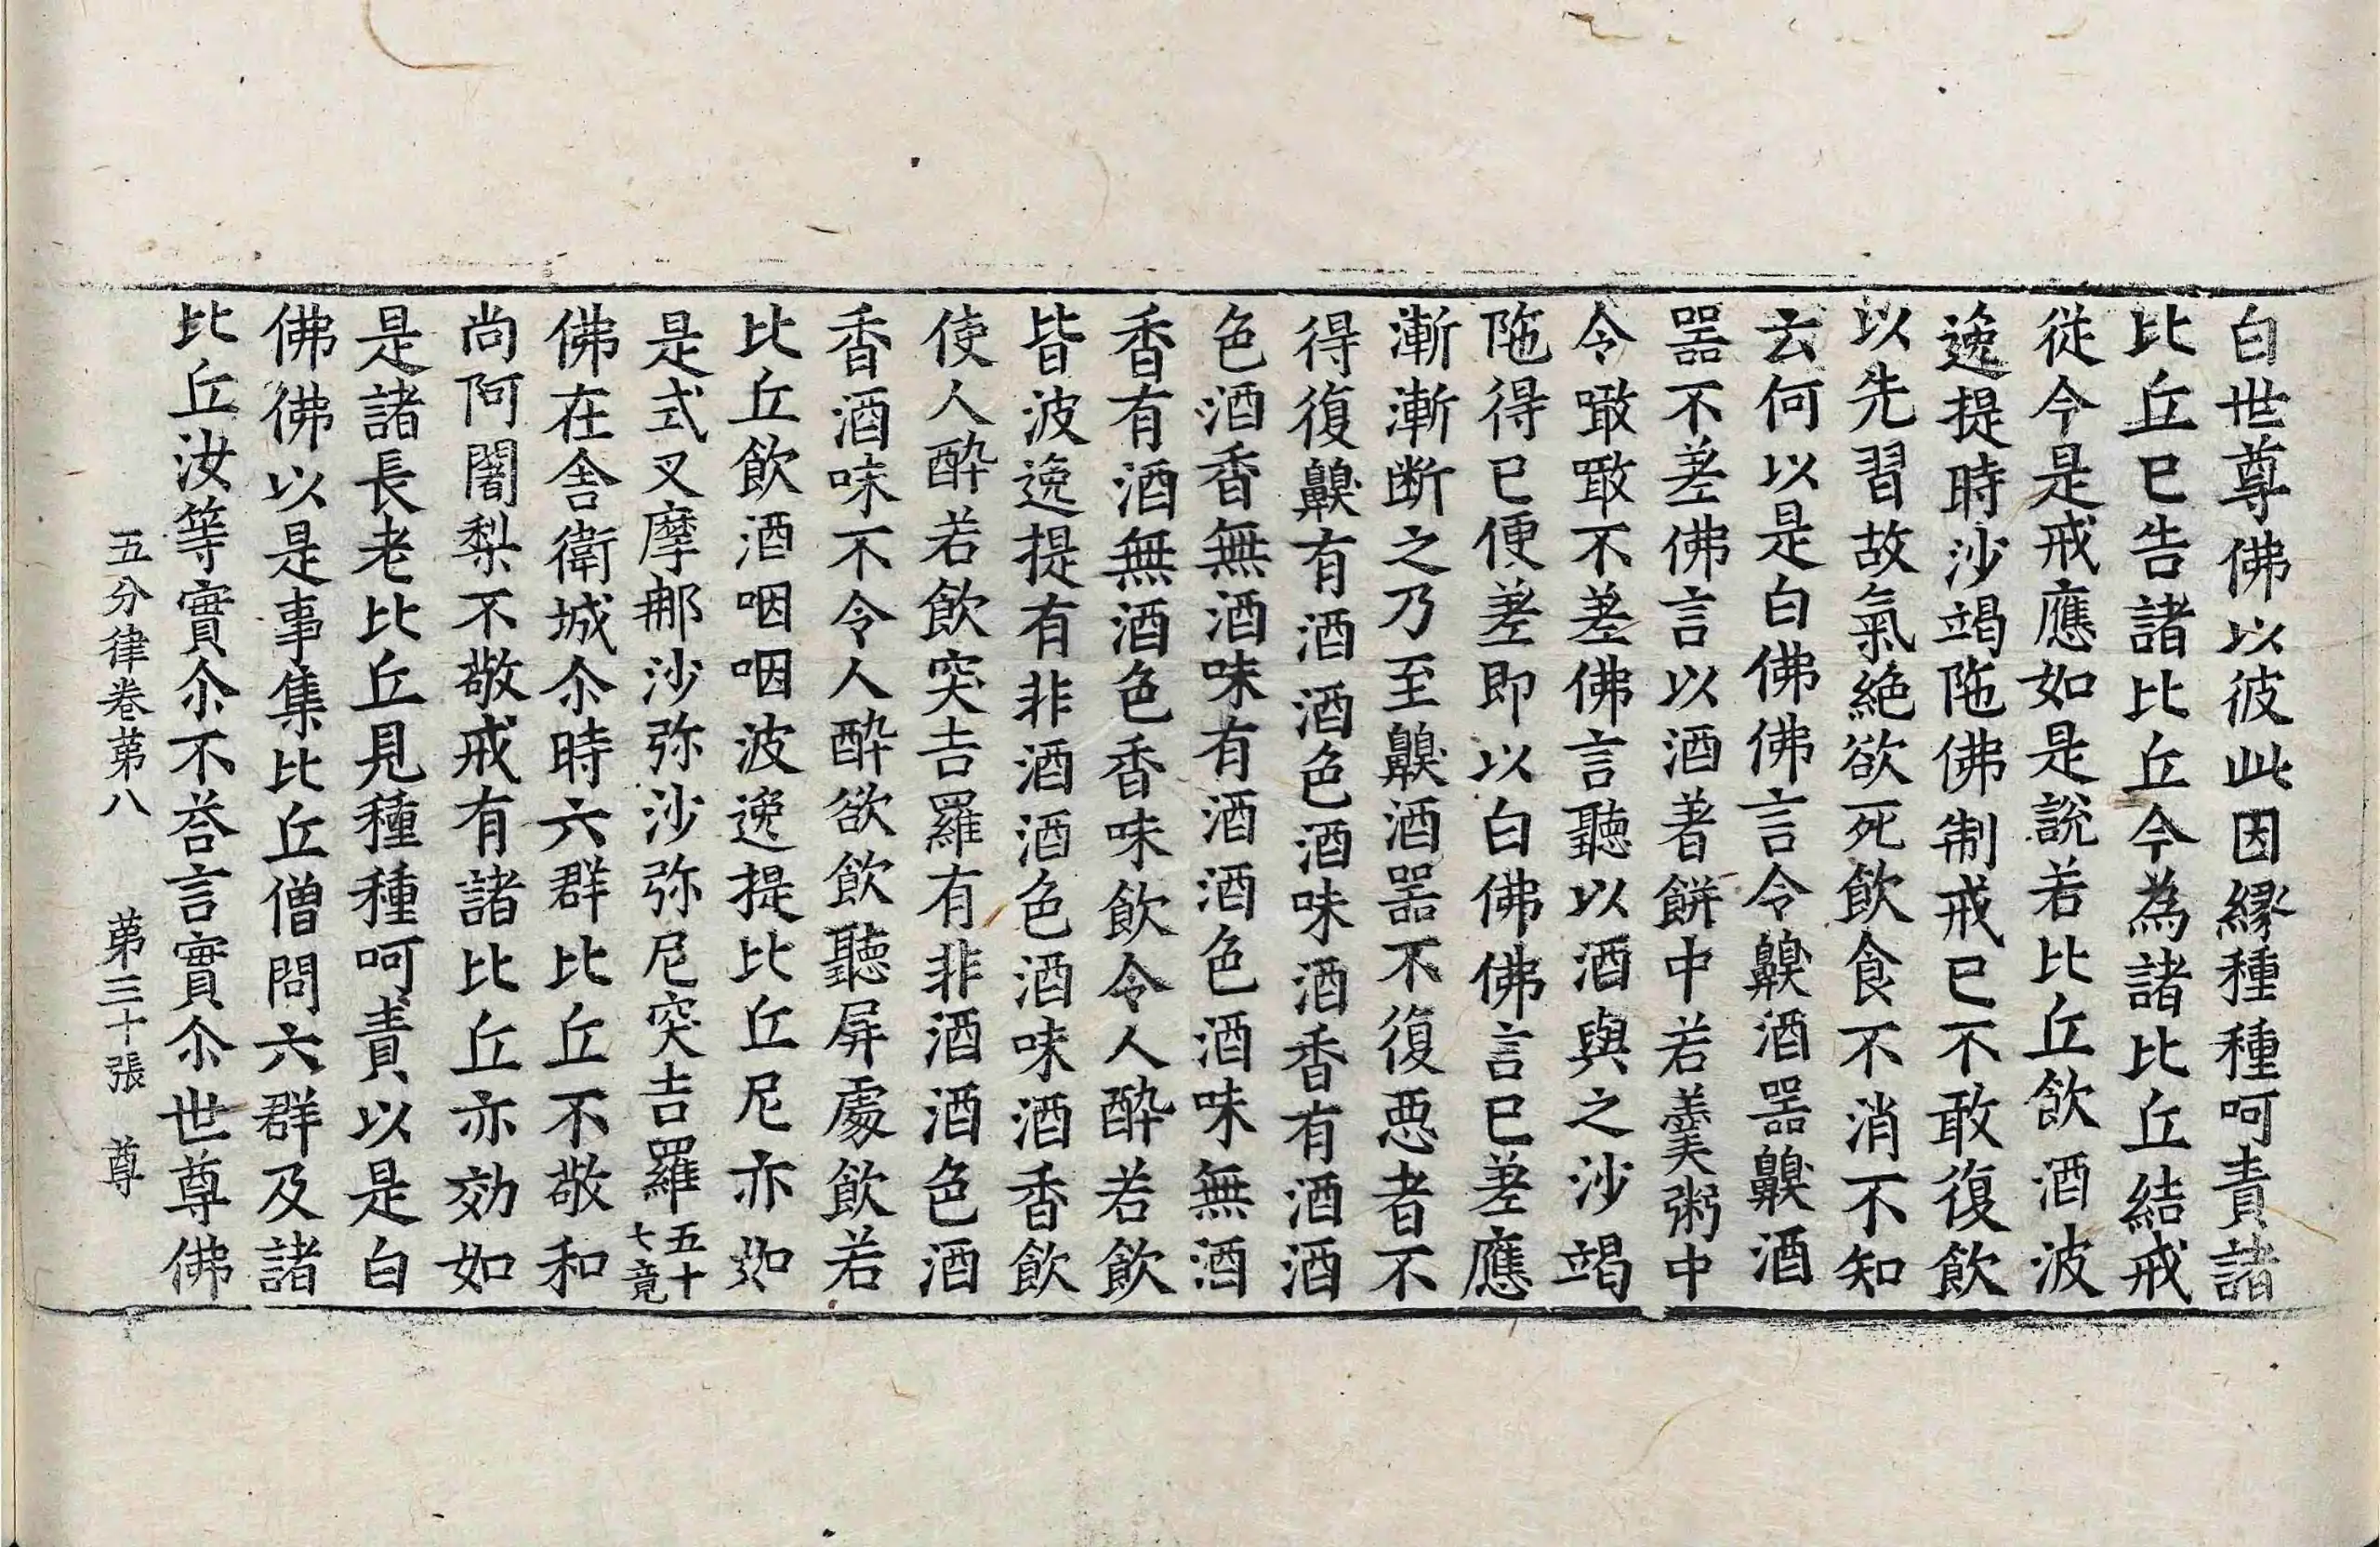 白世尊佛以彼此因縁種種呵責諸
比丘已告諸比丘今為諸比丘結戒
従今是戒應如是說若比丘飲酒波
逸提時沙竭陁佛制戒已不敢復飲
以先習故氣絶欲死飲食不消不知
云何以是白佛佛言令齅酒噐齅酒
噐不差佛言以酒著餅中若羹粥中
令噉噉不差佛言聽以酒與之沙竭
陁得已便差即以白佛佛言已差應
漸漸断之乃至齅酒噐不復惡者不
得復齅有酒酒色酒味酒香有酒酒
色酒香無酒味有酒酒色酒味無酒
香有酒無酒色香味飲令人酔若飲
皆波逸提有非酒酒色酒味酒香飲
使人酔若飲突吉羅有非酒酒色酒
香酒味不令人酔欲飲聽屏處飲若
比丘飲酒咽咽波逸提比丘尼亦如
是式叉摩那沙弥沙弥尼突吉羅五十七竟
佛在舍衛城尒時六群比丘不敬和
尚阿闍梨不敬戒有諸比丘亦効如
是諸長老比丘見種種呵責以是白
佛佛以是事集比丘僧問六群及諸
比丘汝等實尒不荅言實尒世尊佛
五分律卷苐八 苐三十張 尊